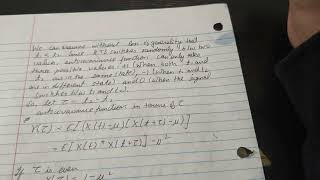 We can assume without loss of generality that
t₁ < t₂. Since X(t) switches randomly b/w two
values, autocovariance function can only take
three possible values: +1 (when both t₁ and
t₂ are in the same state), -1 (when t₁ and t₂
are in different state) and 0 (when the signal
switches b/w t₁ and t₂).
So, let τ = t₂ - t₁
autocovariance function in terms of τ
γ(τ) = E[(X(t) - μ)(X(t+τ) - μ)]
= E[X(t) * X(t+τ)] - μ²
If τ is even
γ(τ) = 1 - μ²